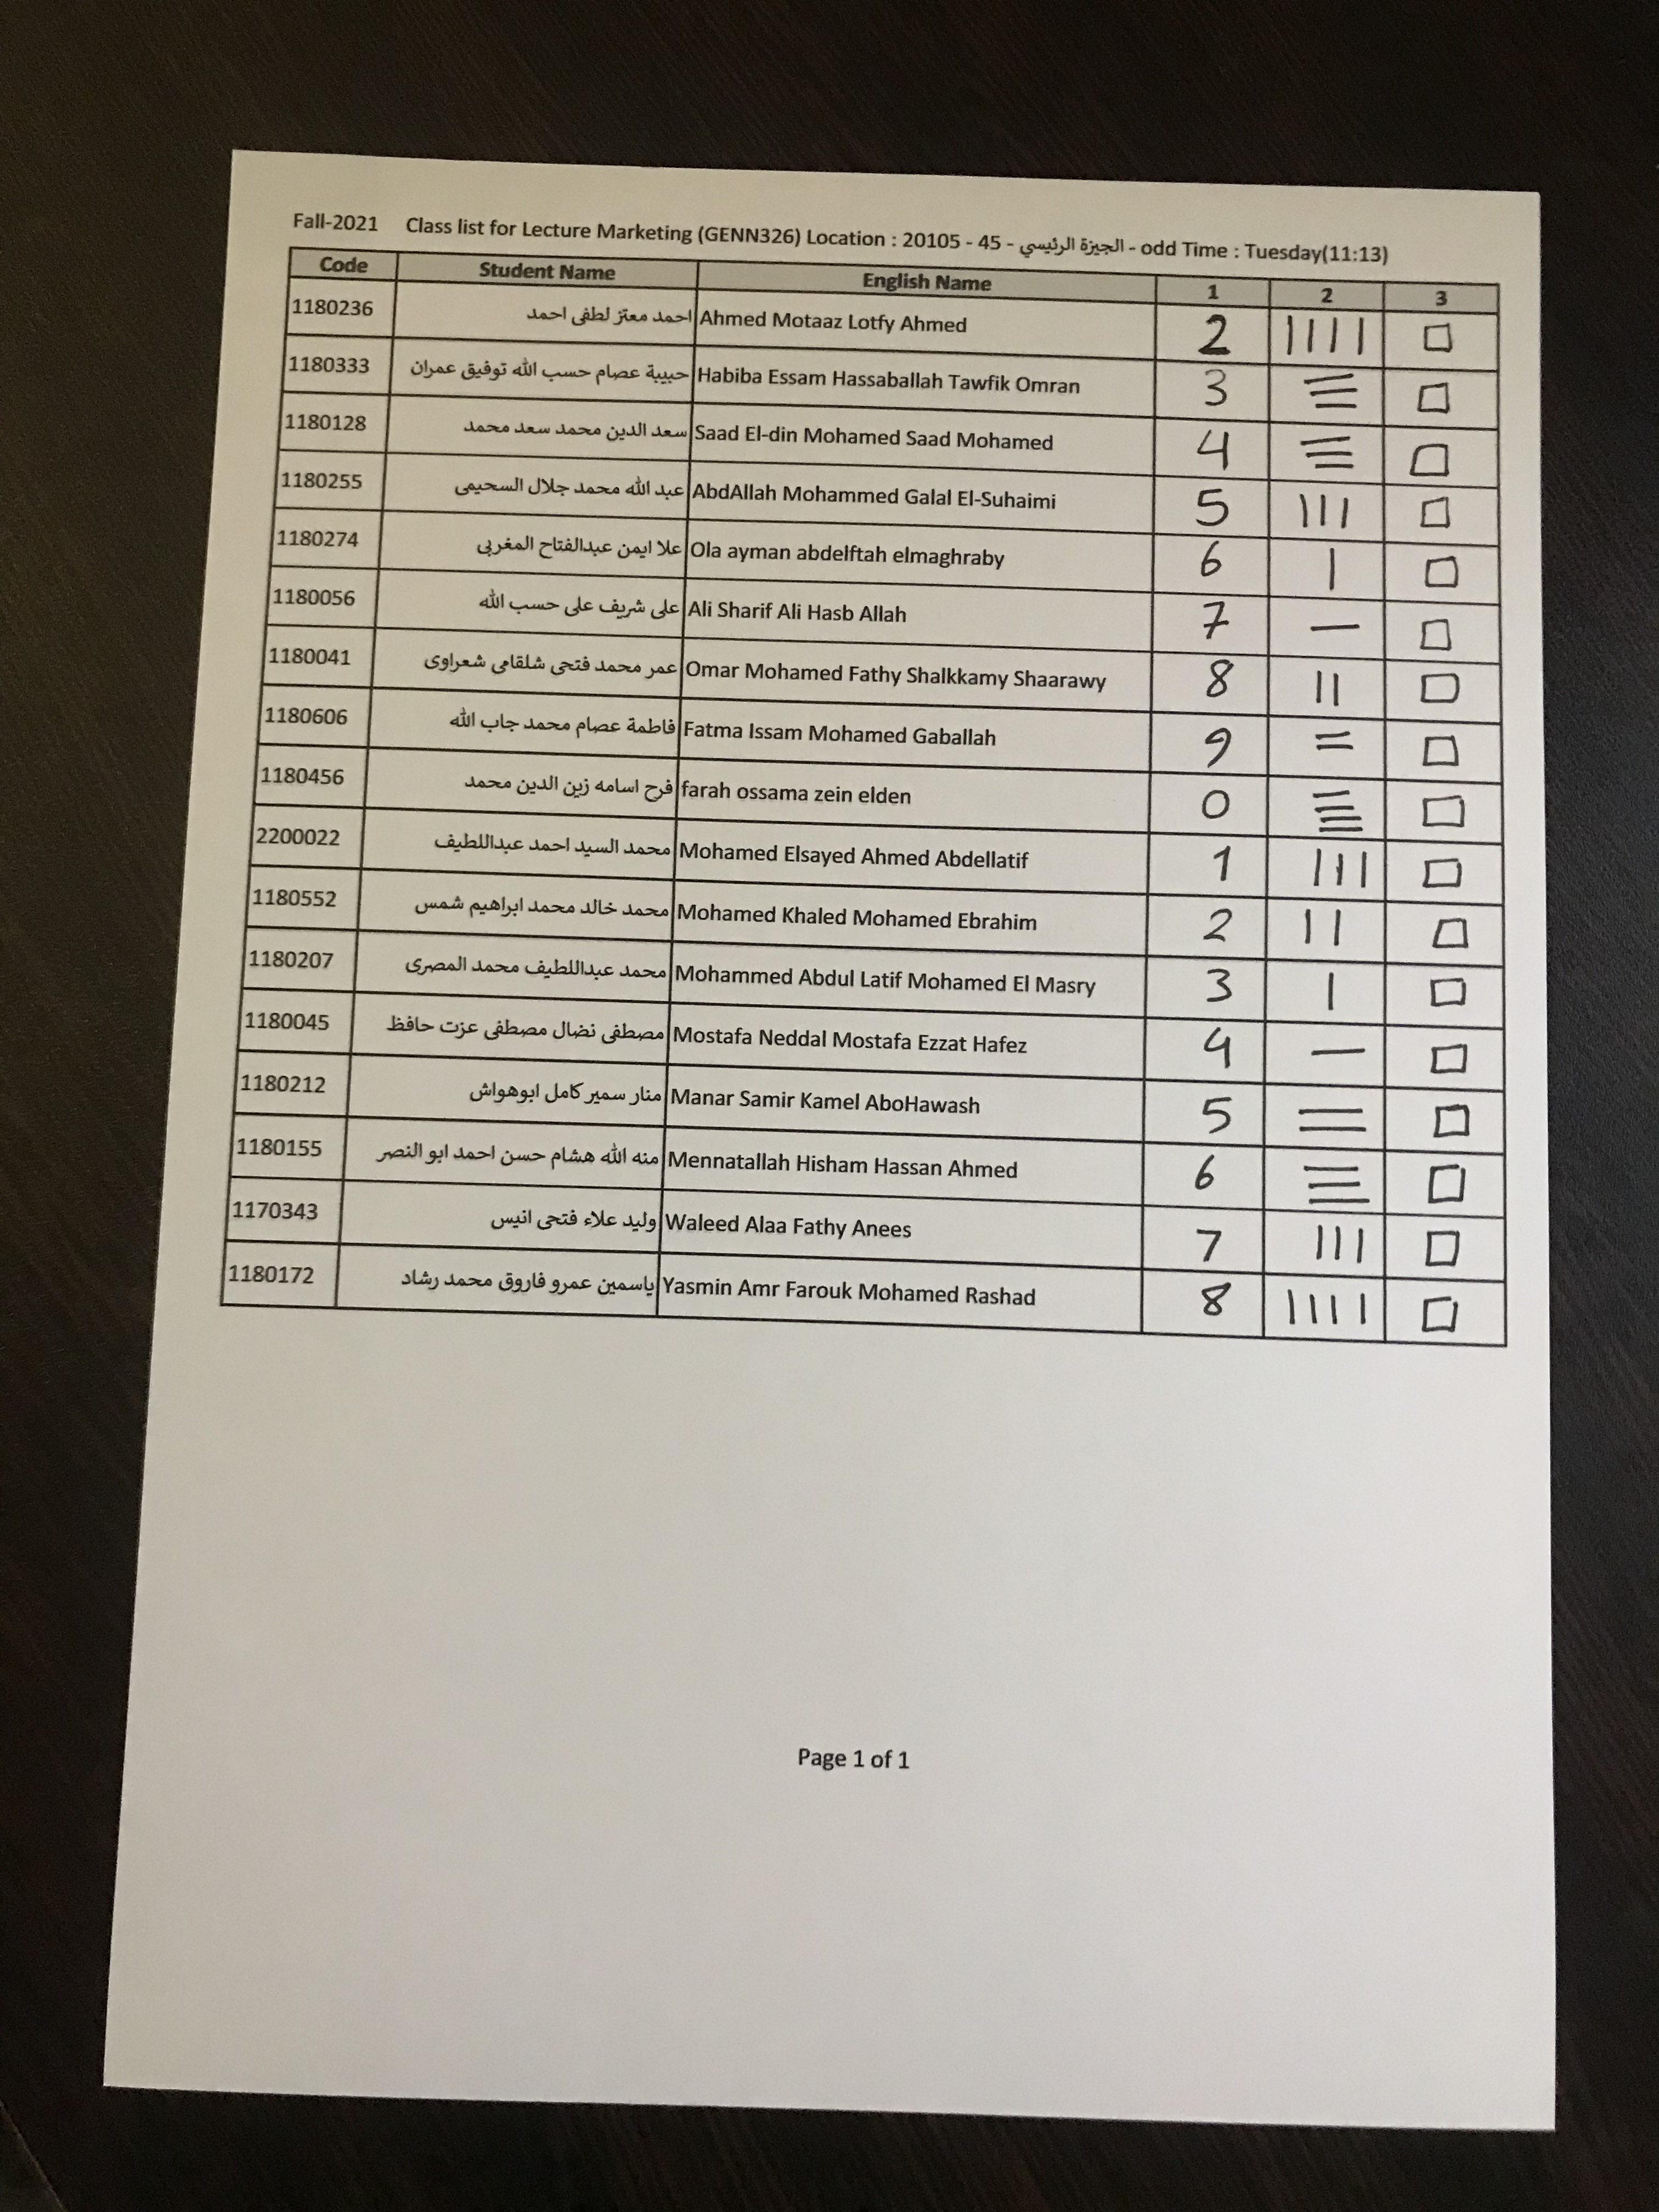 Fall-2021 Class list for Lecture Marketing (GENN326) Location : 20105 - 45 - الجيزة الرئيسي - odd Time : Tuesday(11:13)
Code Student Name English Name 1 2 3
1180236 احمد معتز لطفى احمد Ahmed Motaaz Lotfy Ahmed 2 |||| □
1180333 حبيبة عصام حسب الله توفيق عمران Habiba Essam Hassaballah Tawfik Omran 3 ☰ □
1180128 سعد الدين محمد سعد محمد Saad El-din Mohamed Saad Mohamed 4 ☰ □
1180255 عبد الله محمد جلال السحيمى AbdAllah Mohammed Galal El-Suhaimi 5 ||| □
1180274 علا ايمن عبدالفتاح المغربى Ola ayman abdelftah elmaghraby 6 | □
1180056 على شريف على حسب الله Ali Sharif Ali Hasb Allah 7 — □
1180041 عمر محمد فتحى شلقامى شعراوى Omar Mohamed Fathy Shalkkamy Shaarawy 8 || □
1180606 فاطمة عصام محمد جاب الله Fatma Issam Mohamed Gaballah 9 = □
1180456 فرح اسامه زين الدين محمد farah ossama zein elden 0 𝌆 □
2200022 محمد السيد احمد عبداللطيف Mohamed Elsayed Ahmed Abdellatif 1 ||| □
1180552 محمد خالد محمد ابراهيم شمس Mohamed Khaled Mohamed Ebrahim 2 || □
1180207 محمد عبداللطيف محمد المصرى Mohammed Abdul Latif Mohamed El Masry 3 | □
1180045 مصطفى نضال مصطفى عزت حافظ Mostafa Neddal Mostafa Ezzat Hafez 4 — □
1180212 منار سمير كامل ابوهواش Manar Samir Kamel AboHawash 5 = □
1180155 منه الله هشام حسن احمد ابو النصر Mennatallah Hisham Hassan Ahmed 6 ☰ □
1170343 وليد علاء فتحى انيس Waleed Alaa Fathy Anees 7 ||| □
1180172 ياسمين عمرو فاروق محمد رشاد Yasmin Amr Farouk Mohamed Rashad 8 |||| □
Page 1 of 1